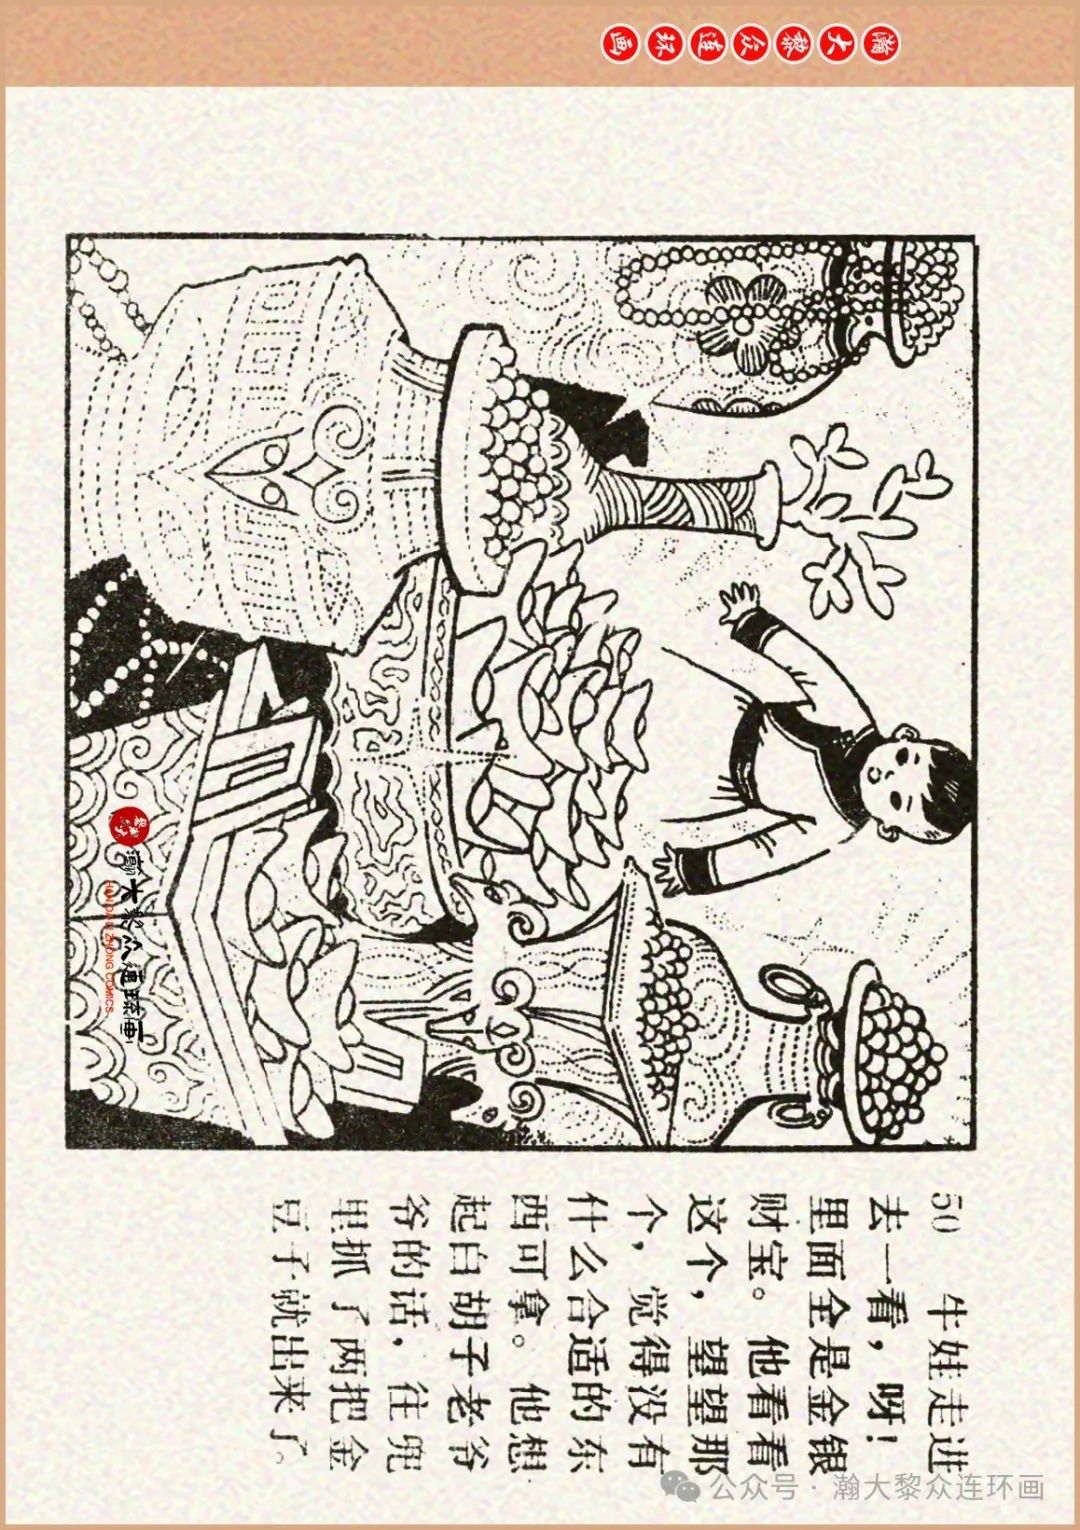 瀚大黎众连环画
50 牛娃走进
去一看，呀！
里面全是金银
财宝。他看看
这个，望望那
个，觉得没有
什么合适的东
西可拿。他想
起白胡子老爷
爷的话，往兜
里抓了两把金
豆子就出来了。
瀚大黎众连环画
HANDALIZHONG COMICS
公众号·瀚大黎众连环画